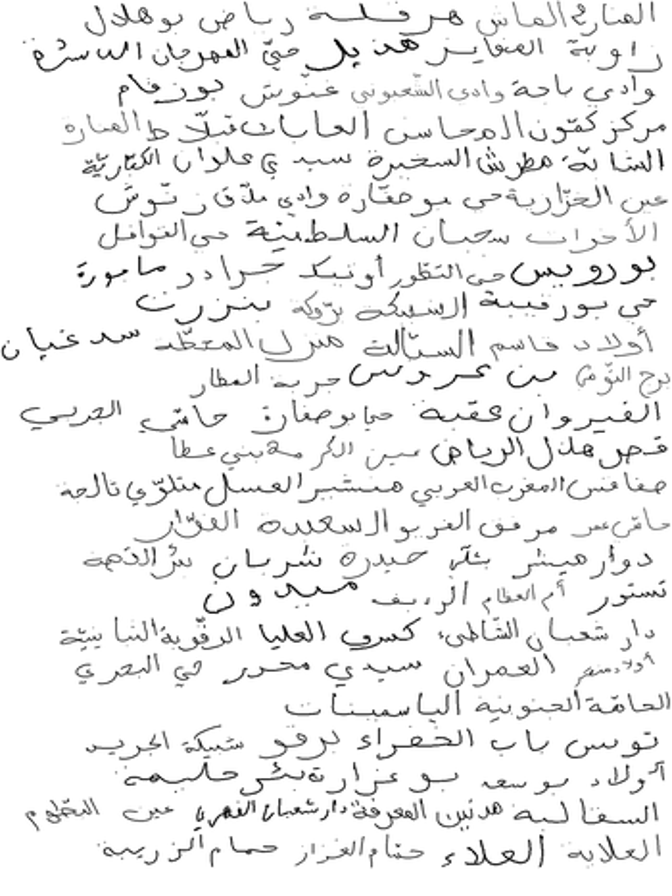 المنارة الماش هرقلة رياض بوهلال
زاوية الصغاير هذيل حيّ المهرجان
وادي باجة وادي الشعبوني غنّوش بوزقام
مركز كمّون المحاسن الغابات قبلّاط المنارة
الشابّة مطرش السخيرة سيدي علوان الكتّاريّة
عين الخزّازية حي بوصفّارة وادي ملّاق زنّوش
الأحزاب سحبان السلطنيّة حي النوافل
بورويس حي التطّور أوتيك جرادر مامورة
حي بورقيبة الشبيكة برّوكة بنزرت
أولاد قاسم السبّالة منزل المحطّة سدغيان
برج التّومي بن عروس جربة العطار
القيروان عقبة حي بوصفارة حاشي الجربي
قصر هلال الرياض عين الكرمة بني عطا
صفاقس المغرب العربي هنشير العسل متلوّي تالجة
حاسي عمر مرفق الغريو السعيدة القوّار
دوار هيشر حيدرة شربان بئر الفحمة
تستور أم العظام الرديف ميدون
دار شعبان الشاطئ كسرى العليا الرقّوبة النباينيّة
العمران سيدي محرز حي البحري
الحامّة الجنوبية الياسمينات
تونس باب الخضراء برقو شبيكة الجريد
أولاد بوسعد بوغرارة بئر حليمة
السفالية مدنين المعرفة دار شعبان الفهري عين البطّوم
العلاية العلاء حمّام الغزاز حمام الزريبة